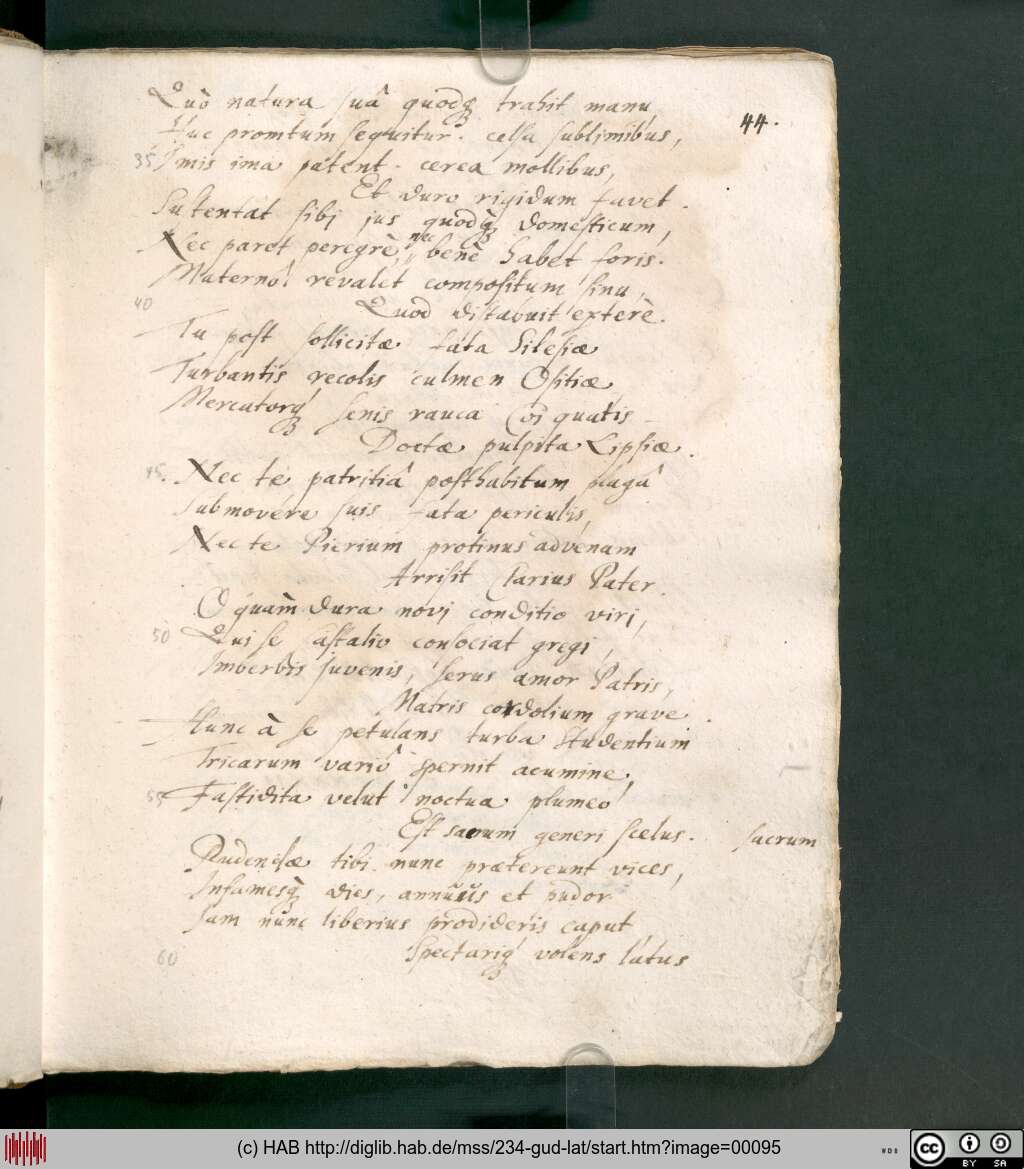 Quò natura suâ quodq; trahit manu
44.
Huc promtum sequitur. celsa sublimibus,
35 Imis ima patent. cerea mollibus,
Et duro rigidum favet.
Sustentat sibj jus quodq; domesticum,
Nec paret peregrè, nec benè habet foris.
Maternô revalet compositum sinu,
40 Quod distabuit exterè.
Tu post sollicitæ fata Silesiæ
Turbantis recolis culmen Ositiæ,
Mercatorq; senis rauca quatis
Doctæ pulpita Lipsiæ.
45. Nec te patritiâ posthabitum plagâ
Submovére suis fata periculis,
Nec te Pierium protinus advenam
Arrisit Clarius Pater.
O quàm dura novj conditio viri,
50 Qui se astalio consociat gregi,
Imberbis juvenis, serus amor Patris,
Matris cordolium grave.
Hunc à se petulans turba Studentium
Tricarum variô spernit acumine,
55 Fastidita velut noctua plumeô
Est sacrum generi scelus. sacrum
Pudendæ tibi nunc prætereunt vices,
Infamesq; dies, annuus et pudor
Jam nunc liberius prodideris caput,
60 Spectariq; volens latus
(c) HAB http://diglib.hab.de/mss/234-gud-lat/start.htm?image=00095
cc BY SA